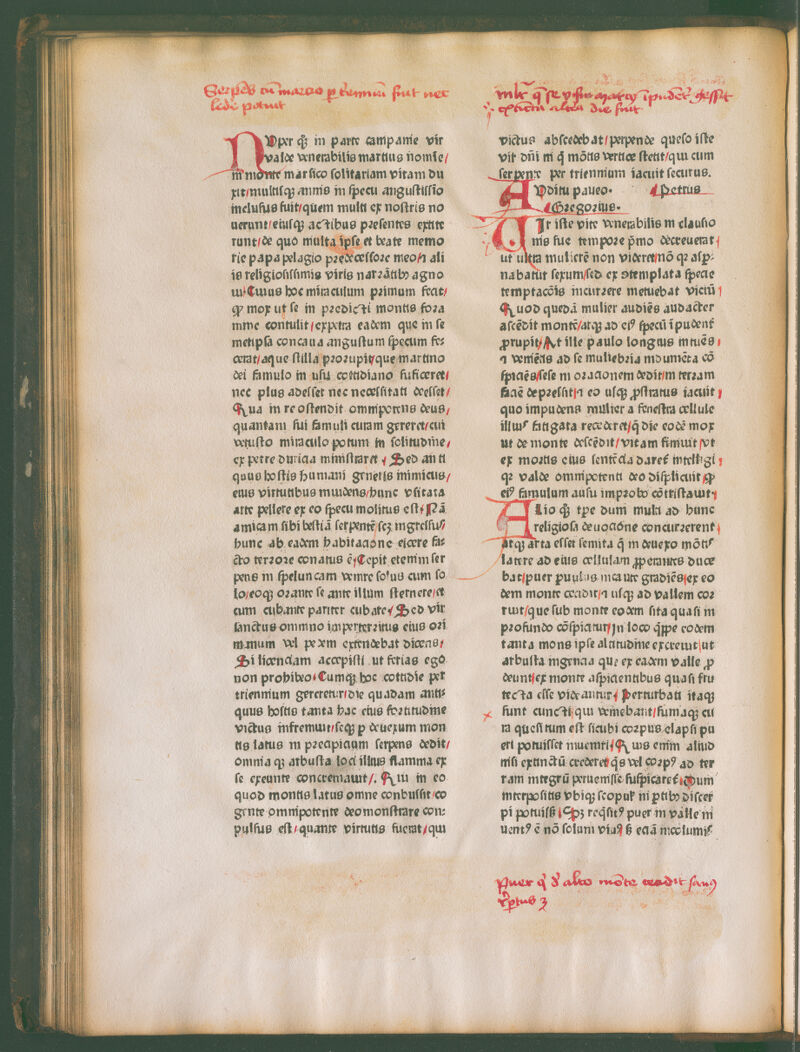 Serpēs cū marcio p triennium fuit nec
ledē potuit
NUper qȝ in parte campanie vir
valde venerabilis martius nomīe/
in monte marsico solitariam vitam du
xit/multisqȝ annis in specu angustissīo
inclusus fuit/quem multi ex nostris no
uerunt/eiusqȝ actibus presentes extite
runt/de quo multa ip̄se et beate memo
rie papa pelagio predecessore meo/⁊ ali
is religiosissimis viris narrātibꝰ agno
ui/Cuius hoc miraculum primum fecit/
ꝙ mox ut se in predicti montis fora
mine contulit/ex petra eadem que in se
metipsa concaua angustum specum fe⸗
cerat/aque stilla prorupit/que martino
dei famulo in usu cottidiano sufficeret/
nec plus adesset nec necessitati deesset/
Qua in re ostendit omnipotens deus,
quantam sui famuli curam gereret/cui
vetusto miraculo potum in solitudine,
ex petre duricia ministraret/Sed anti
quus hostis humani generis inimicus/
eius virtutibus inuidens/hunc vsitata
arte pellere ex eo specu molitus est/Nā
amicam sibi bestiā serpentē scȝ ingressuȝ
hunc ab eadem habitacione eicere fa⸗
cto terrore conatus ē/Cepit etenim ser
pens in speluncam venire solus cum so
lo/eoqȝ orante se ante illum sternere/et
cum cubante pariter cubare/Sed vir
sanctus omnino imperterritus eius ori
manum vel pedem extendebat dicens/
Si licenciam accepisti ut ferias ego
non prohibeo/Cumqȝ hoc cottidie per
triennium gereretur/die quadam anti⸗
quus hostis tanta hac eius fortitudine
victus infremuit/seqȝ p deuexum mon
tis latus in precipicium serpens dedit/
omnia qȝ arbusta loci illius flamma ex
se exeunte concremauit/. Qui in eo
quod montis latus omne conbussit/co
gente omnipotente deo monstrare con⸗
pulsus est/quante virtutis fuerat/qui
mlr̄ q̄ se ... marcij īpudēt̄ gessit
... altera die fuit
victus abscedebat/perpende queso iste
vir dn̄i in q̄ mōtis vertice stetit/qui cum
serpente per triennium iacuit securus.
AUditu paueo. Petrus
Gregorius.
Uir iste vite venerabilis in clausio
nis sue tempore p̄mo decreuerat/
ut ultra mulierē non videret/nō qȝ aspꝰ⸗
nabatur sexum/sed ex ꝯtemplata specie
temptacōis incurrere metuebat viciū/
Quod quedā mulier audiēs audacter
ascēdit montē/atqȝ ad eiꝰ specū īpudent̄
ꝓrupit/At ille paulo longius intuēs/
⁊ veniētis ad se muliebria indumēta cō
spiciēs/sese in oracionem dedit/in terram
faciē depressit/⁊ eo usqȝ ꝓstratus iacuit/
quo impudens mulier a fenestra cellule
illiuꝰ fatigata recederet/q̄ die eodē mox
ut de monte descēdit/vitam finiuit/vt
ex mortis eius sentēcia daret̄ intelligi/
qȝ valde omnipotenti deo displicuit/ꝙ
eiꝰ famulum ausu improbo cōtristauit/
ALio qȝ tꝑe dum multi ad hunc
religiosa deuocione concurrerent/
atqȝ arta esset semita q̄ in deuexo mōtiꝰ
latere ad eius cellulam ꝓperantes duce
bat/puer puulus incaute gradiēs/ex eo
dem monte cecidit/⁊ usqȝ ad vallem cor
ruit/que sub monte eodem sita quasi in
profundo cōspiciatur/In loco q̄ppe eodem
tanta mons ipse altitudine excreuit/ut
arbusta ingencia que ex eadem valle ꝓ
deunt/ex monte aspicientibus quasi fru
tecta esse videantur/Perturbati itaqȝ
sunt cuncti/qui veniebant/sumaqȝ cu
ra quesitum est sicubi corpus elapsi pu
eri potuisset inueniri/Quis enim aliud
nisi extinctū crederet/q̄s vel corpꝰ ad ter
ram integrū peruenisse suspicaret̄/dum
interpositis vbiqȝ scopul̄ in ꝑtibꝰ discer
pi potuissȝ/Sȝ reqͥsitꝰ puer in valle in
uentꝰ ē nō solum viuȝ sȝ eciā incolumiꝰ
Puer q̄ d̄ alto mōte cecidit sanꝰ
rep̄tus ȝ